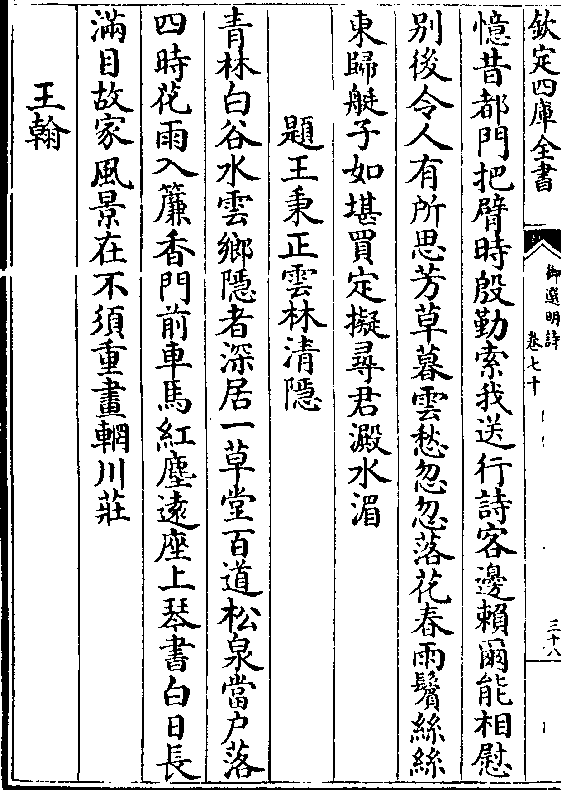 欽定四庫全書
御選明詩
卷七十
三十八
憶昔都門把臂時殷勤索我送行詩客邊賴爾能相慰
别後令人有所思芳草暮雲愁忽忽落花春雨鬢絲絲
東歸艇子如堪買定擬尋君澱水湄
題王秉正雲林清隱
青林白谷水雲鄉隱者深居一草堂百道松泉當户落
四時花雨入簾香門前車馬紅塵遠座上琴書白日長
滿目故家風景在不須重畫輞川莊
王翰